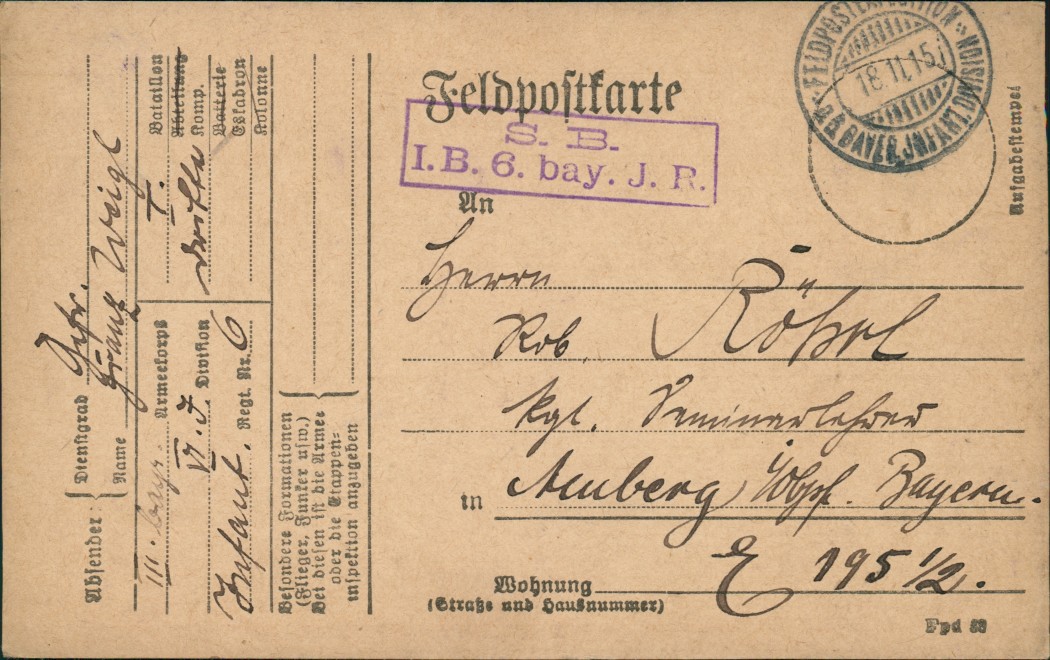 Feldpostkarte
S. B.
I. B. 6. bay. J. R.
FELDPOSTEXPEDITION
18.11.15
D. 6. BAYER. INFANT. DIVISION
Aufgabestempel
An
Herrn
Rob. Rößel
kgl. Seminarlehrer
in Amberg, Obpf. Bayern.
E 195 1/2.
Wohnung
(Straße und Hausnummer)
Fpd 53
Absender:
Dienstgrad Gefr.
Name Franz Weigl
III. bayr. Armeekorps
VI. J. Division
Infant. Regt. Nr. 6
I. Bataillon
Abteilung
dritte Komp.
Batterie
Eskadron
Kolonne
Besondere Formationen
(Flieger, Funker usw.)
Bei diesen ist die Armee
oder die Etappen-
inspektion anzugeben